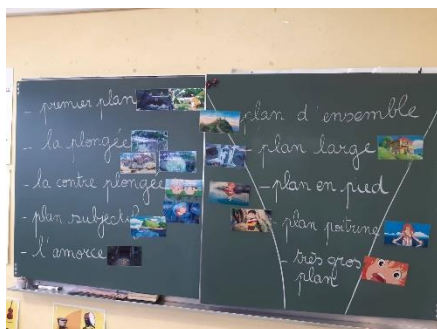 - premier plan
- la plongée
- la contre plongée
- plan subjectif
- l'amorce
plan d'ensemble
- plan large
- plan en pied
- plan poitrine
- très gros
plan